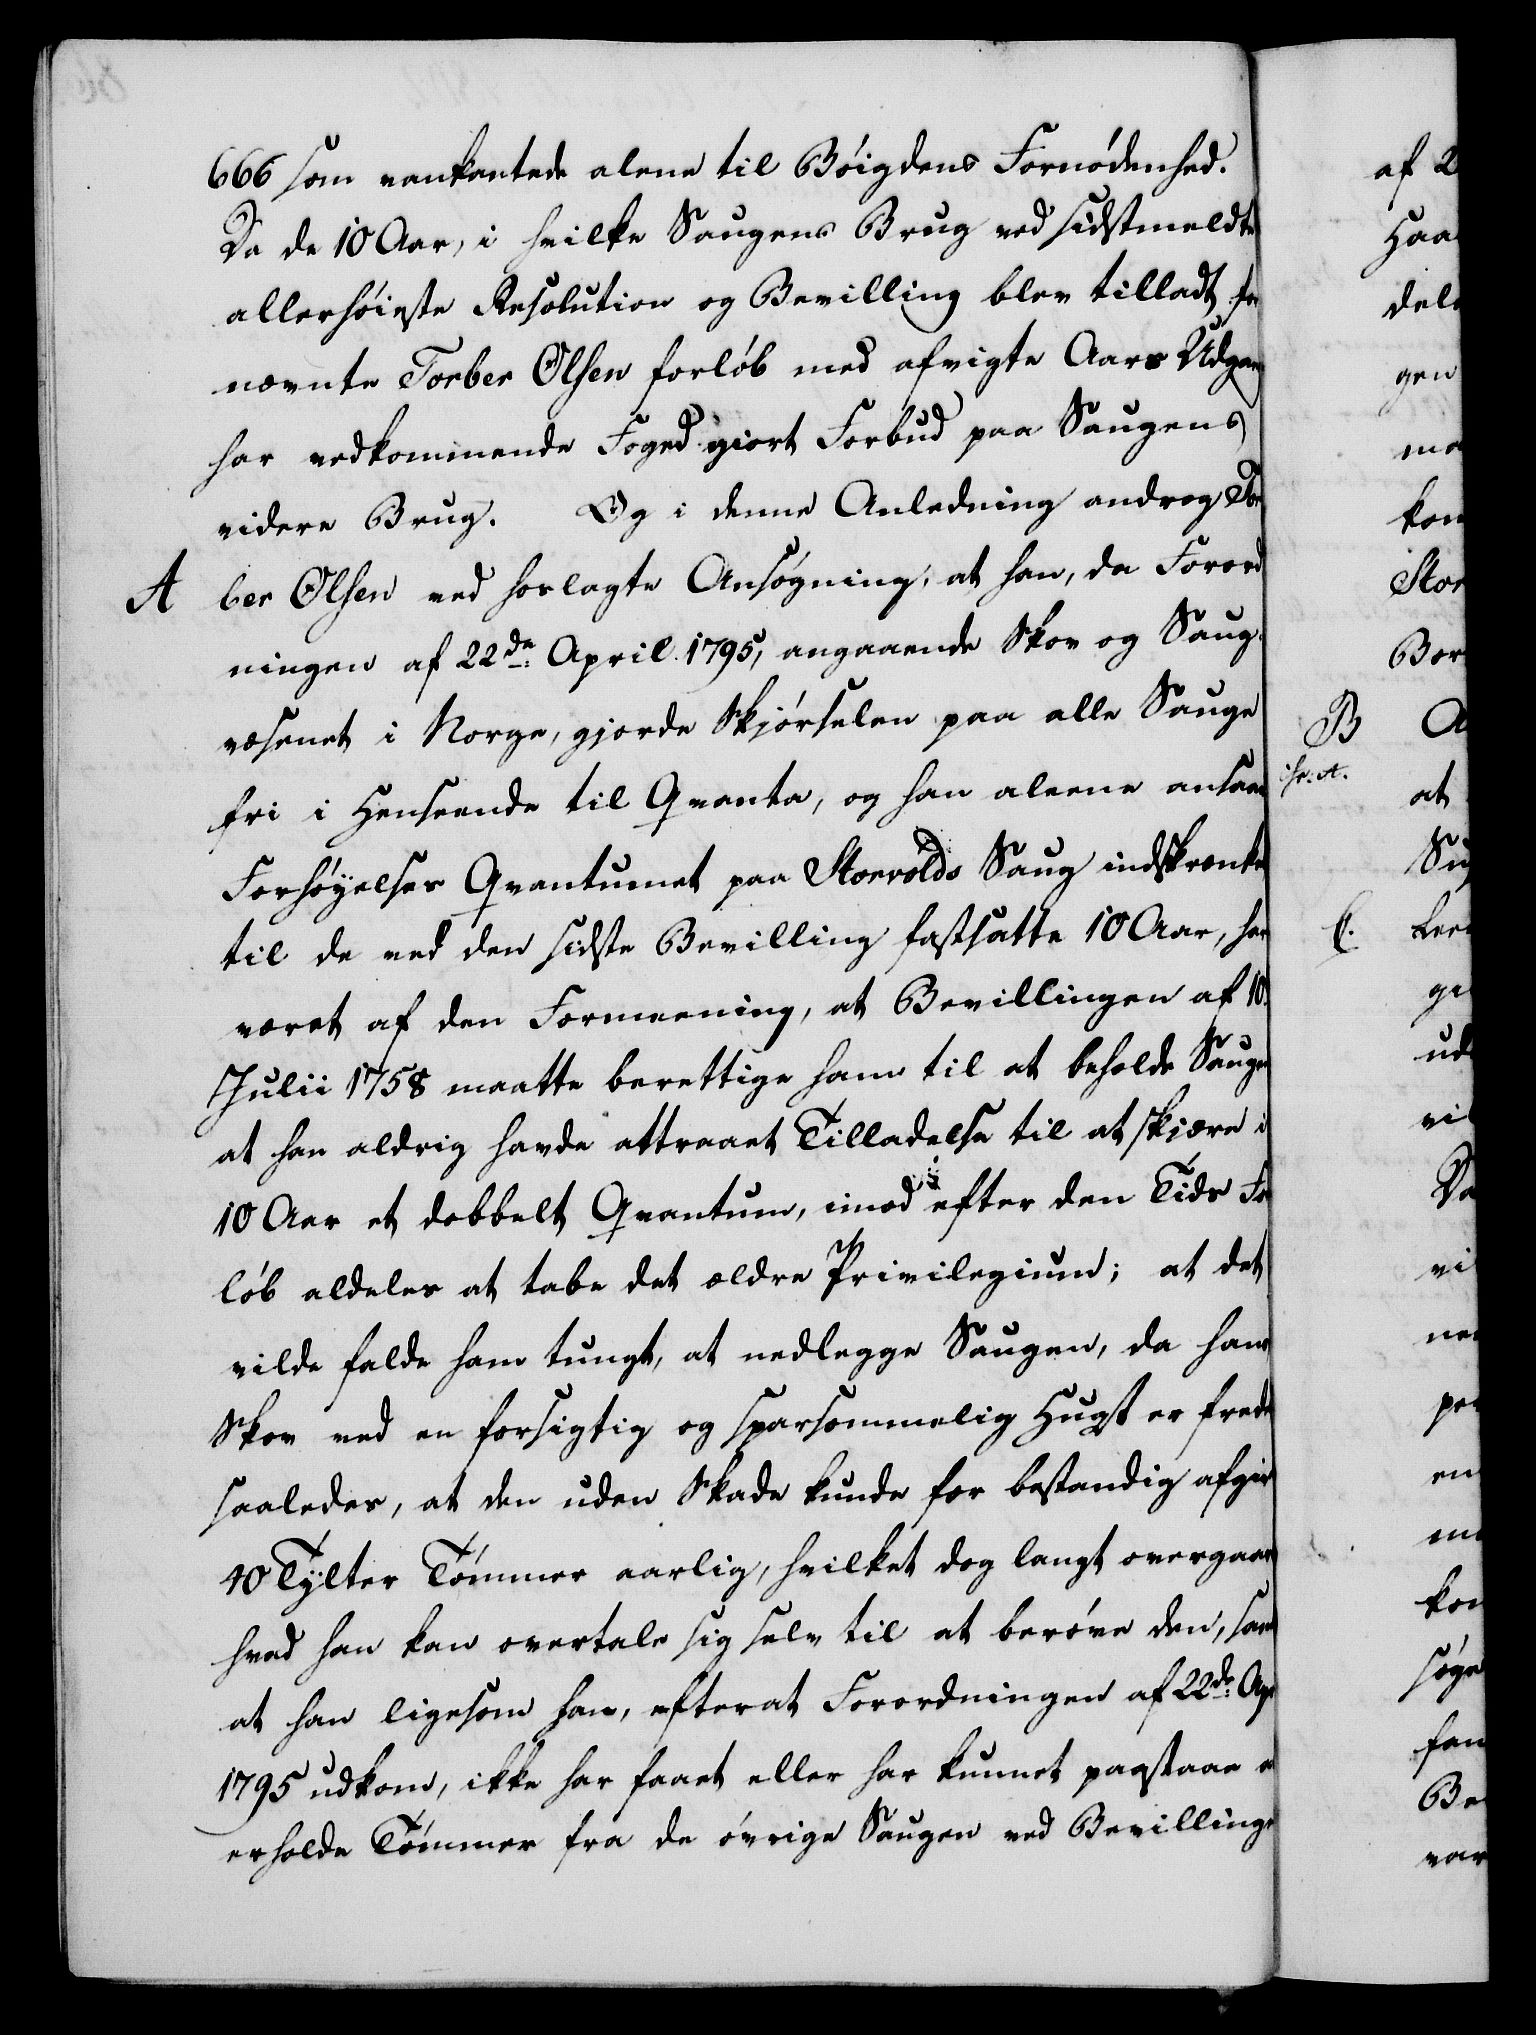 666 som vankantede alene til Böigdens Fornödenhed.
Da de 10 Aar, i hvilke Saugens Brug ved sidstmeldte
allerhöieste Resolution og Bevilling blev tilladt for
nævnte Torber Olsen forlöb med afvigte Aars Udgang
har vedkommende Foged giort Forbud paa Saugens
videre Brug. Og i denne Anledning androg Tor
A ber Olsen ved hoslagte Ansögning, at han, da Forord
ningen af 22de April 1795, angaaende Skov og Saug-
væsenet i Norge, gjorde Skjörselen paa alle Sauge
fri i Henseende til Qvanta, og han aleene ansaae
Forhöyelses Qvantumet paa Storvolds Saug indskrænket
til de ved den sidste Bevilling fastsatte 10 Aar, har
været af den Formeening, at Bevillingen af 10.
Julii 1758 maatte berettige ham til at beholde Saugen
at han aldrig havde attraaet Tilladelse til at skjære i
10 Aar et dobbelt Qvantum, imod efter den Tids For
löb aldeles at tabe det ældre Privilegium; at det
vilde falde ham tungt, at nedlegge Saugen, da hans
Skov ved en forsigtig og sparsommelig Hugst er fredet
saaledes, at den uden Skade kunde for bestandig afgive
40 Tylter Tömmer aarlig, hvilket dog langt overgaaer
hvad han kan overtale sig selv til at beröve den, samt
at han ligesom han, efterat Forordningen af 22de Apr
1795 udkom, ikke har faaet eller har kunnet paastaae at
erholde Tömmer fra de övrige Saugen ved Bevillinge
af 2
Haa
dele
gen
ma
kom
Stor
Bor
B A
at
Su
C.
ge
ud
vil
Da
vi
ne
pe
en
me
kon
söge
fan
Be
var